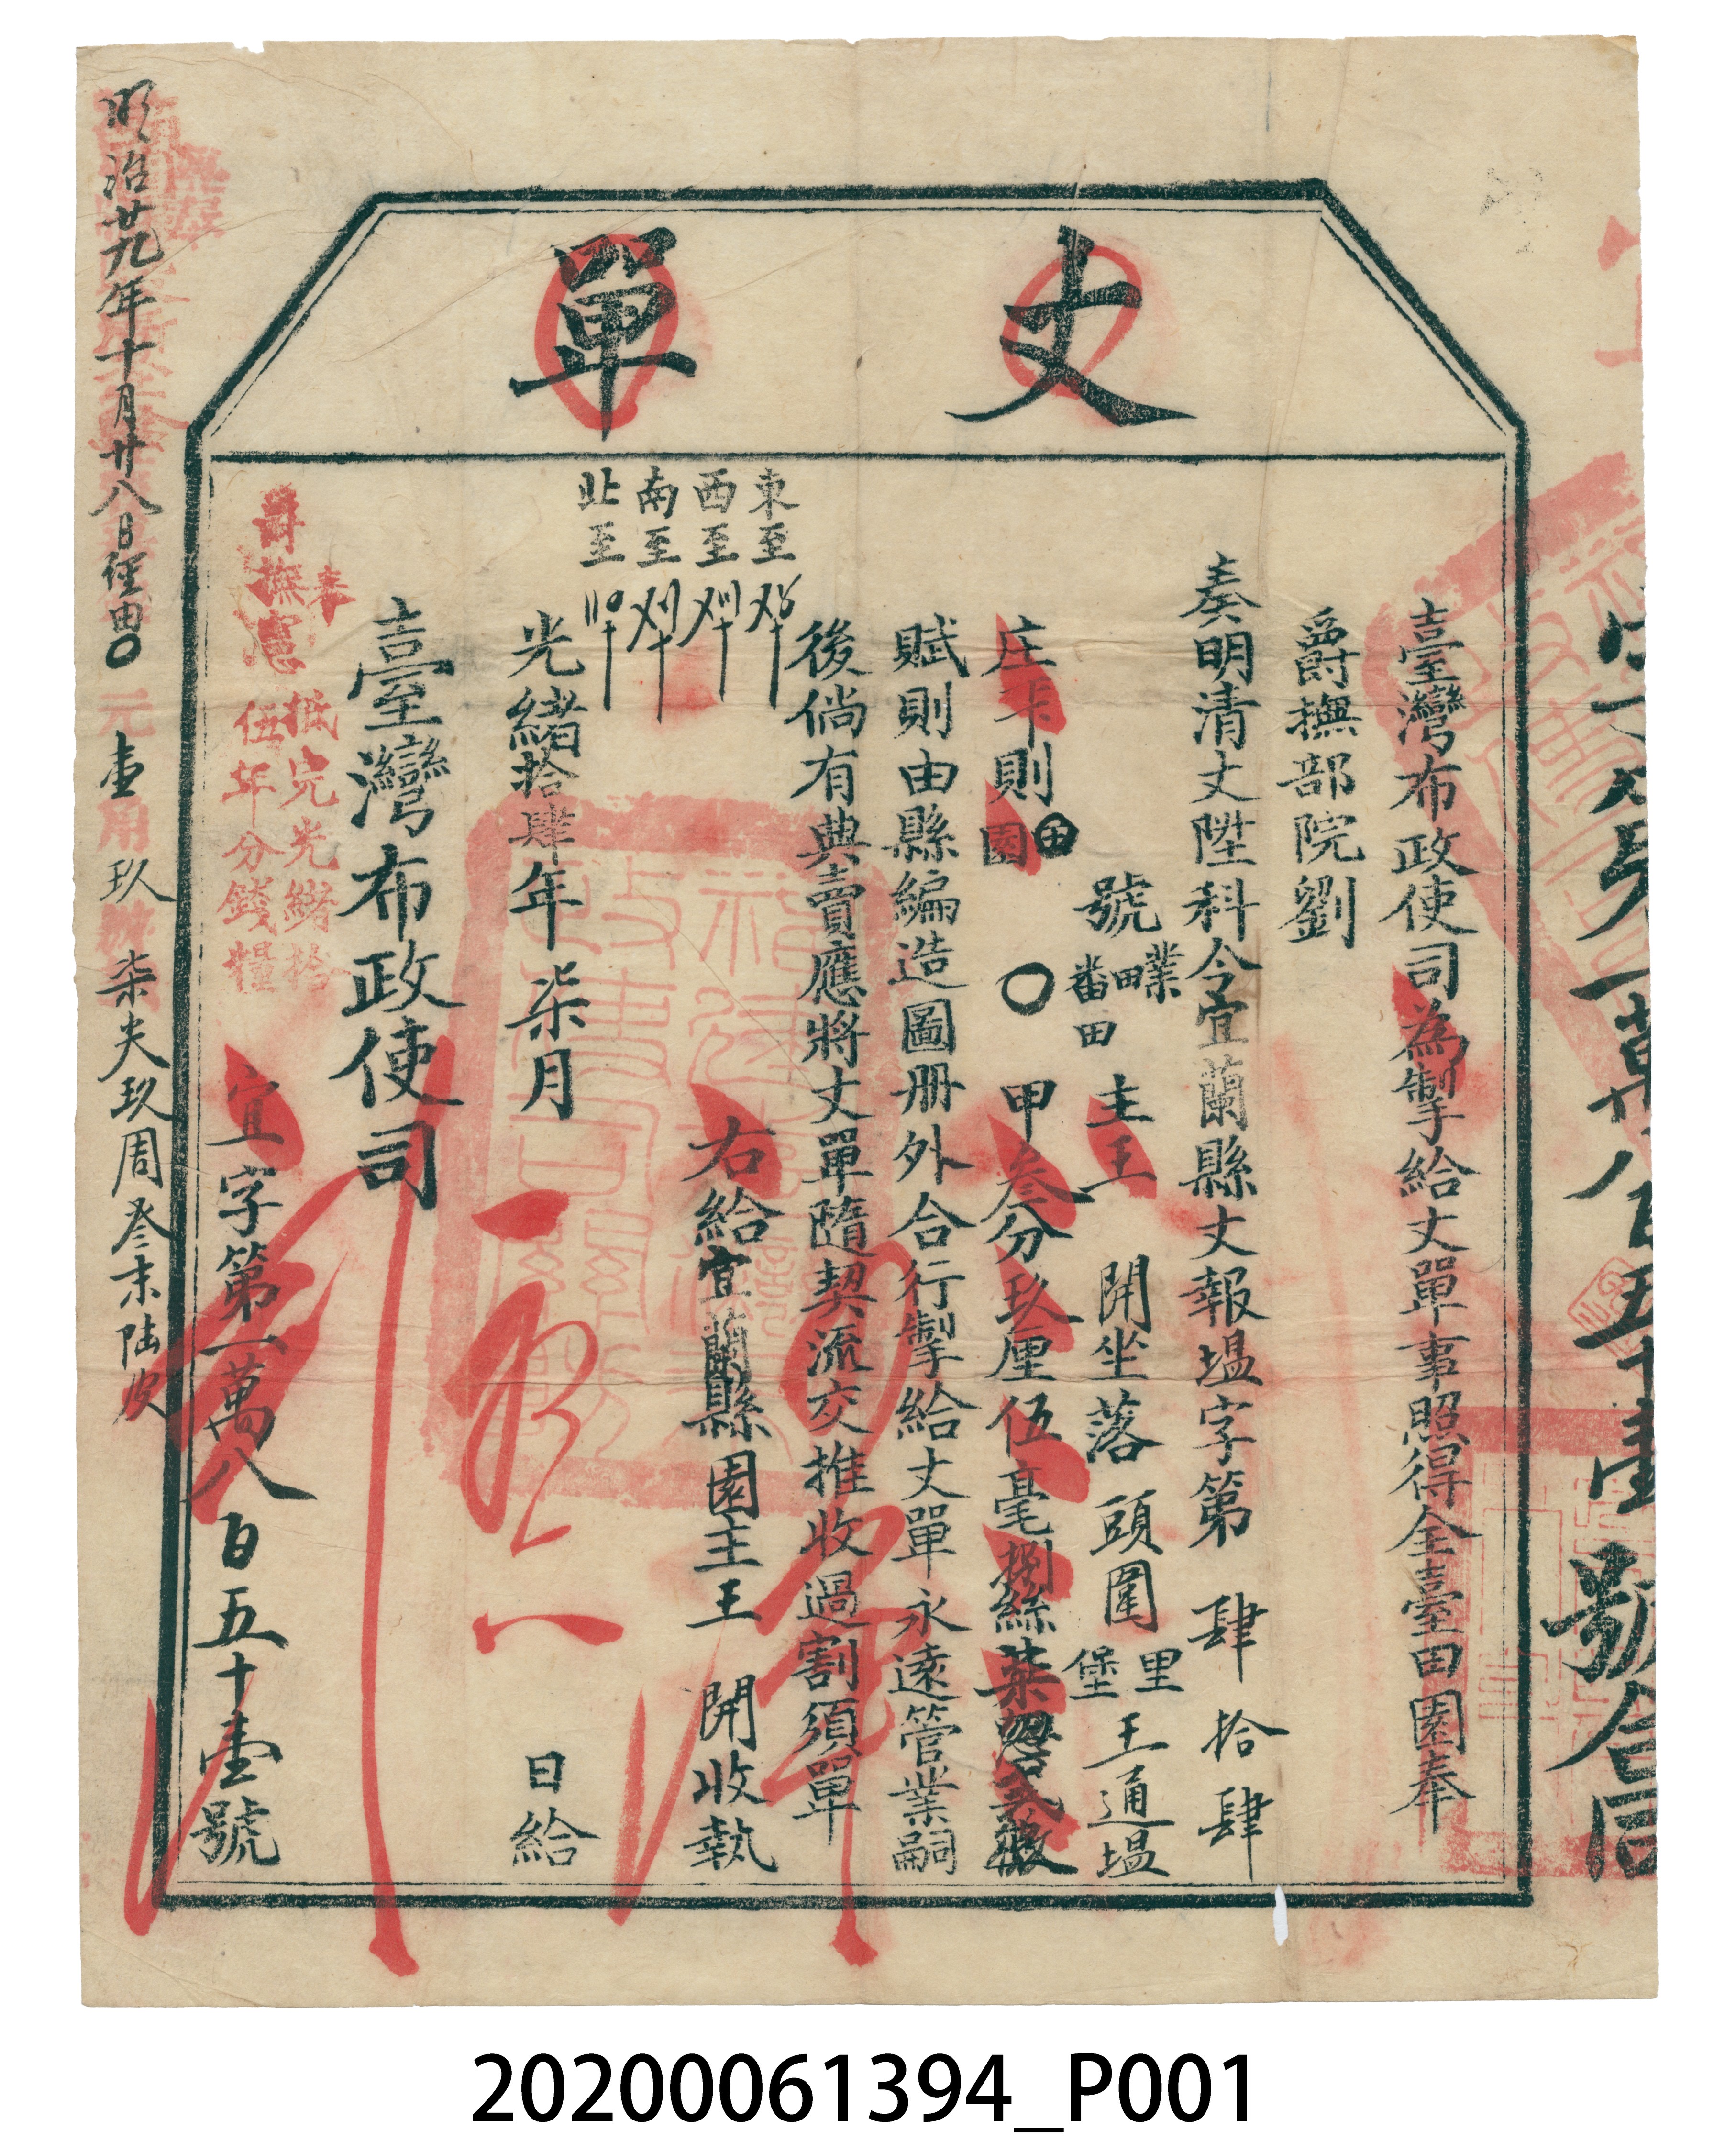 丈單
臺灣布政使司為掣給丈單事照得全臺田園奉
爵撫部院劉
奏明清丈陞科令宜蘭縣丈報塭字第肆拾肆
號業田番田主王開坐落頭圍里堡王通塭
庄下則田園〇甲叁分玖厘伍毫捌絲柒忽弍微
賦則由縣編造圖册外合行掣給丈單永遠管業嗣
後倘有典賣應將丈單隨契流交推收過割須單
東至
西至
南至
北至
右給宜蘭縣園主王開收執
光緒拾肆年柒月日給
臺灣布政使司
奉
爵撫憲抵完光緒拾
伍年分錢糧
宜字第一萬八百五十壹號
明治廿九年十月廿八日經由〇元壹用玖柒夫玖周叁末陸
一萬八百五十壹號合同
20200061394_P001